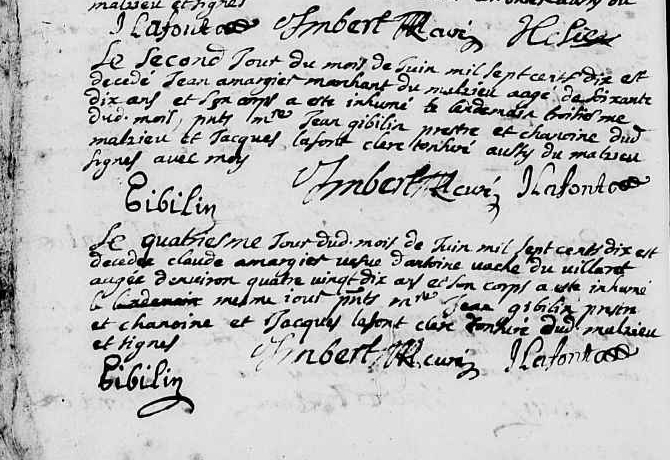 malzieu et signes
JLafont Imbert curé
Le second Jour du mois de Juin mil sept cents dix est
decedé Jean amargier marchant du malzieu aagé de soixante
dix ans et son corps a este inhumé le landemain troisiesme
dud. mois, pnts mre Jean gibilin prestre et chanoine dud
malzieu et Jacques lafont clerc tonsuré aussy du malzieu
signes avec moy
Gibilin Imbert curé JLafont
Le quatriesme Jour dud. mois de Juin mil sept cents dix est
decedee claude amargier vefve d'antoine vache du villaret
aagée denviron quatre vingt dix ans et son corps a este inhumé
le landemain mesme jour pnts mre Jean gibilin prestre
et chanoine et Jacques lafont clerc tonsuré dud malzieu
et signes
Gibilin Imbert curé JLafont